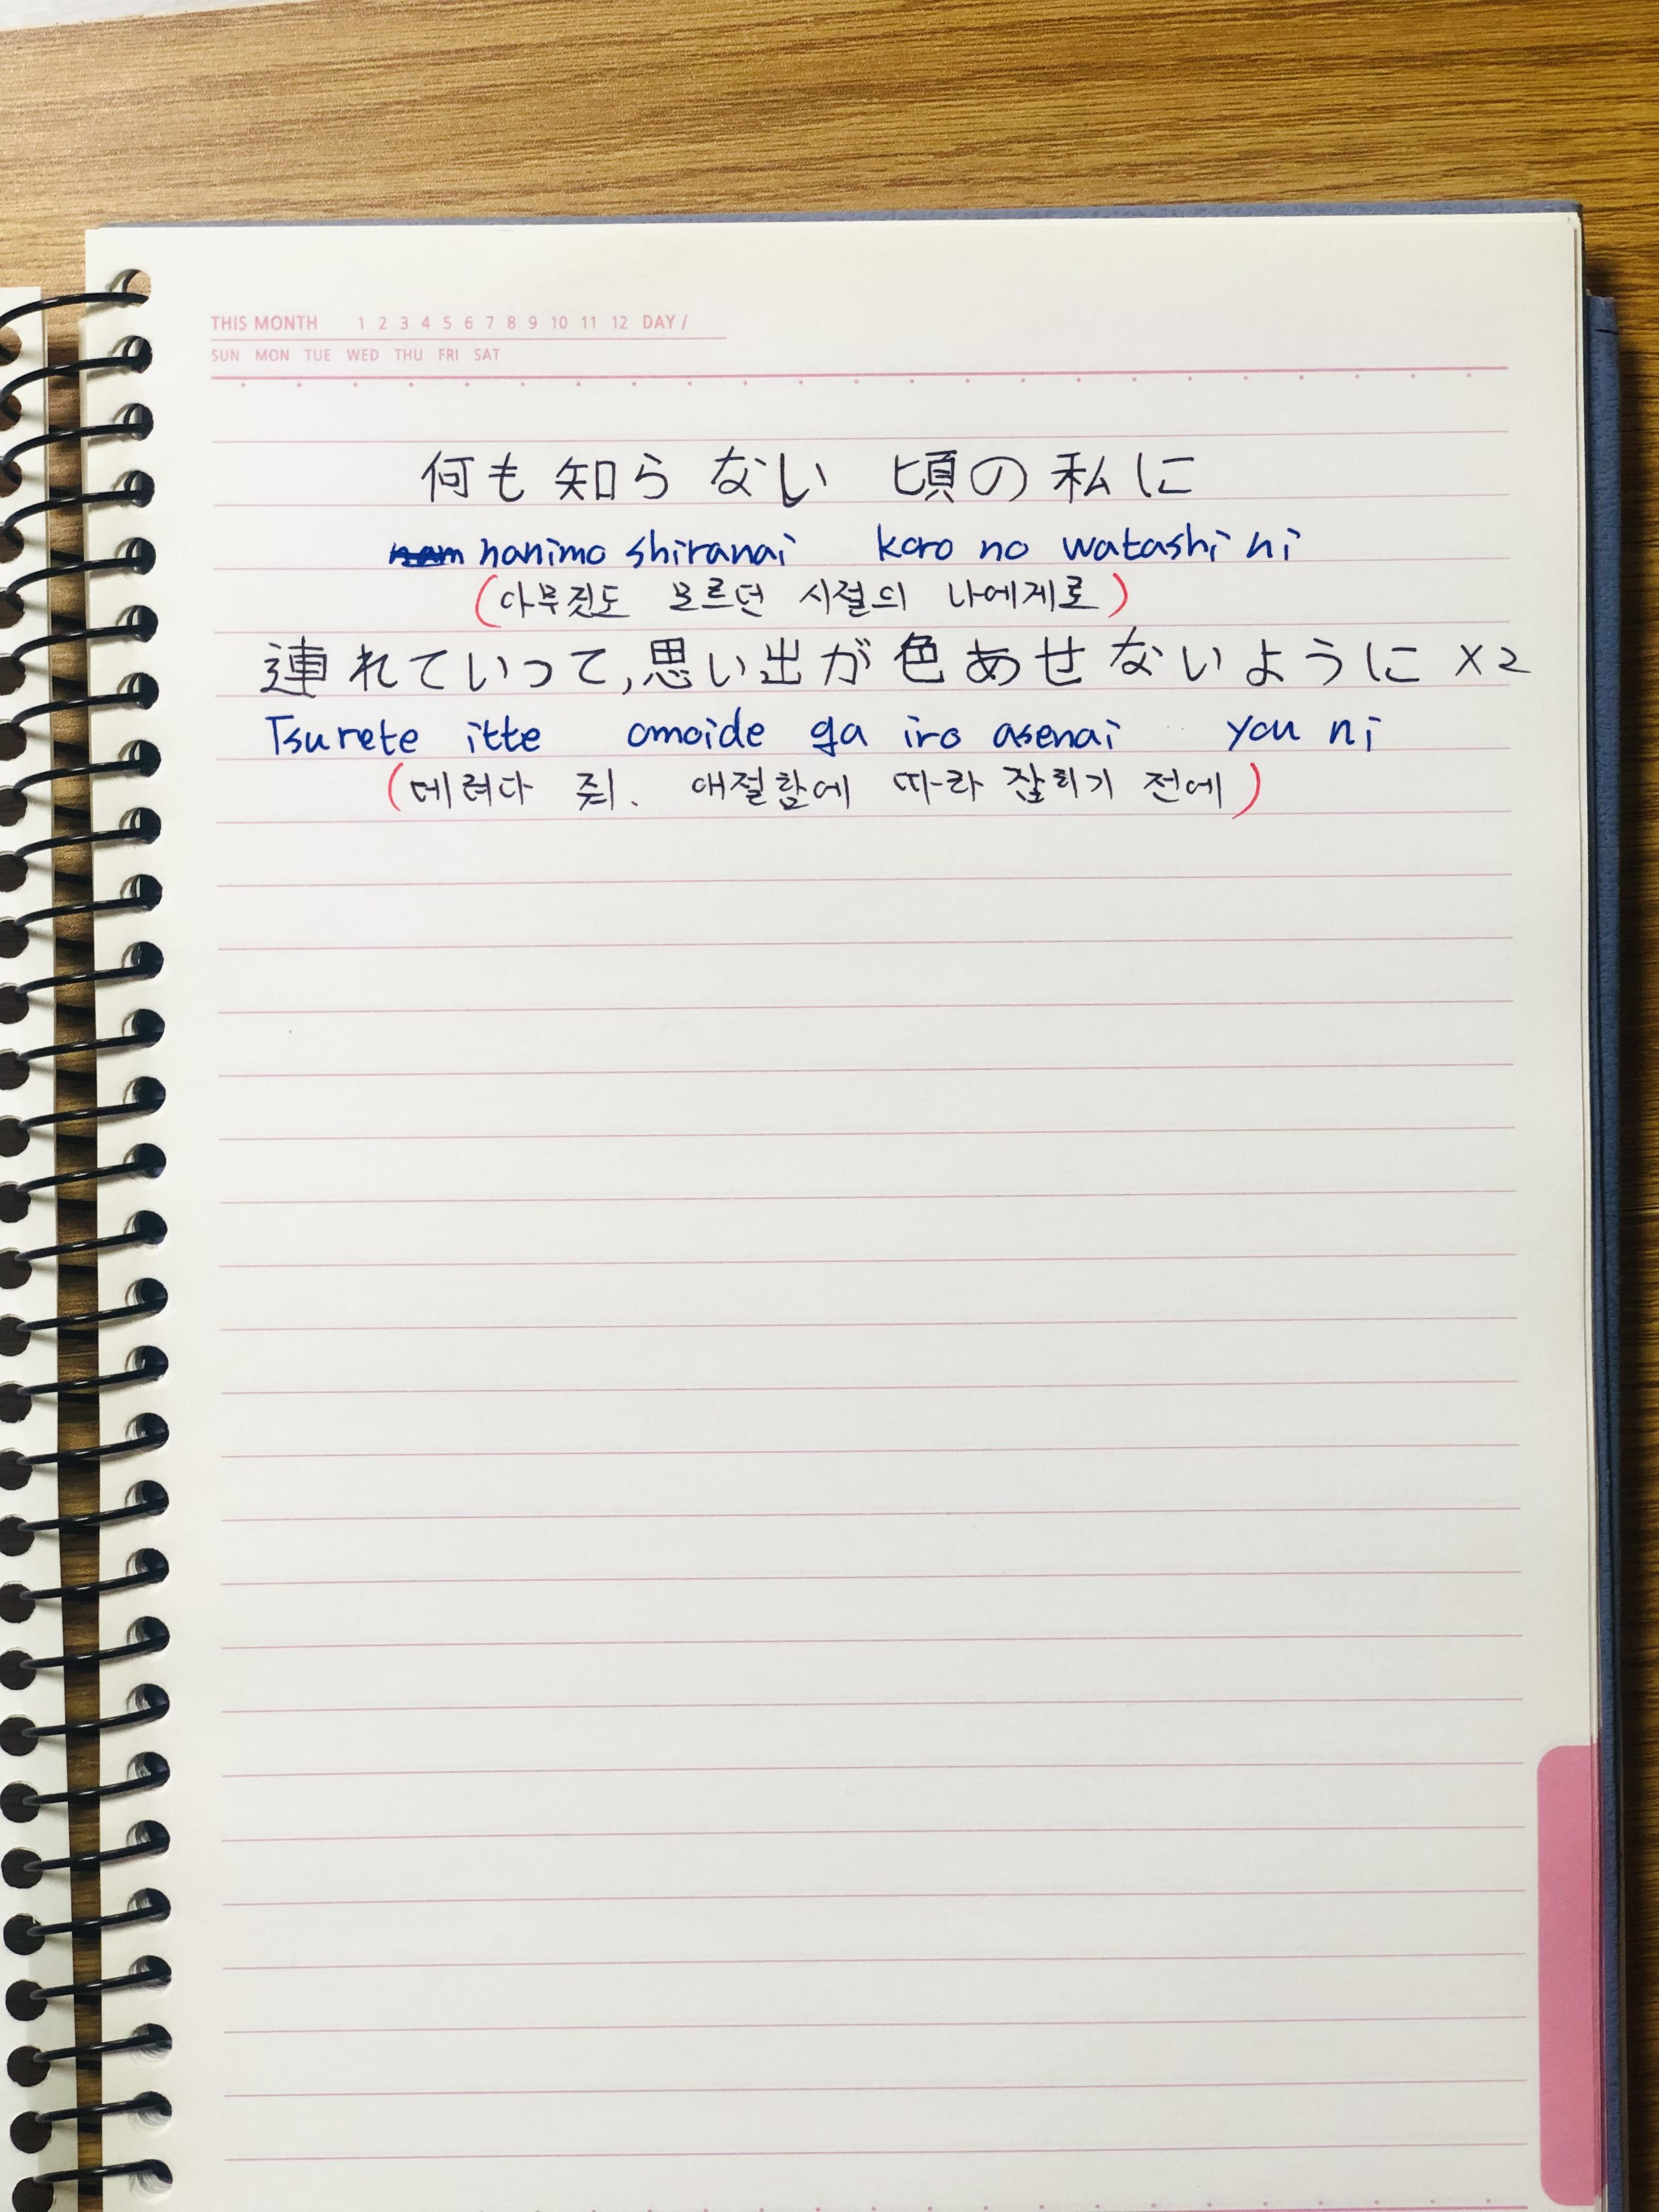 THIS MONTH 1 2 3 4 5 6 7 8 9 10 11 12 DAY /
SUN MON TUE WED THU FRI SAT
何も知らない 頃の私に
nanimo shiranai koro no watashi ni
(아무것도 모르던 시절의 나에게로)
連れていって,思い出が色あせないように ×2
Tsurete itte omoide ga iro asenai you ni
(데려다 줘. 애절함에 따라 잡히기 전에)